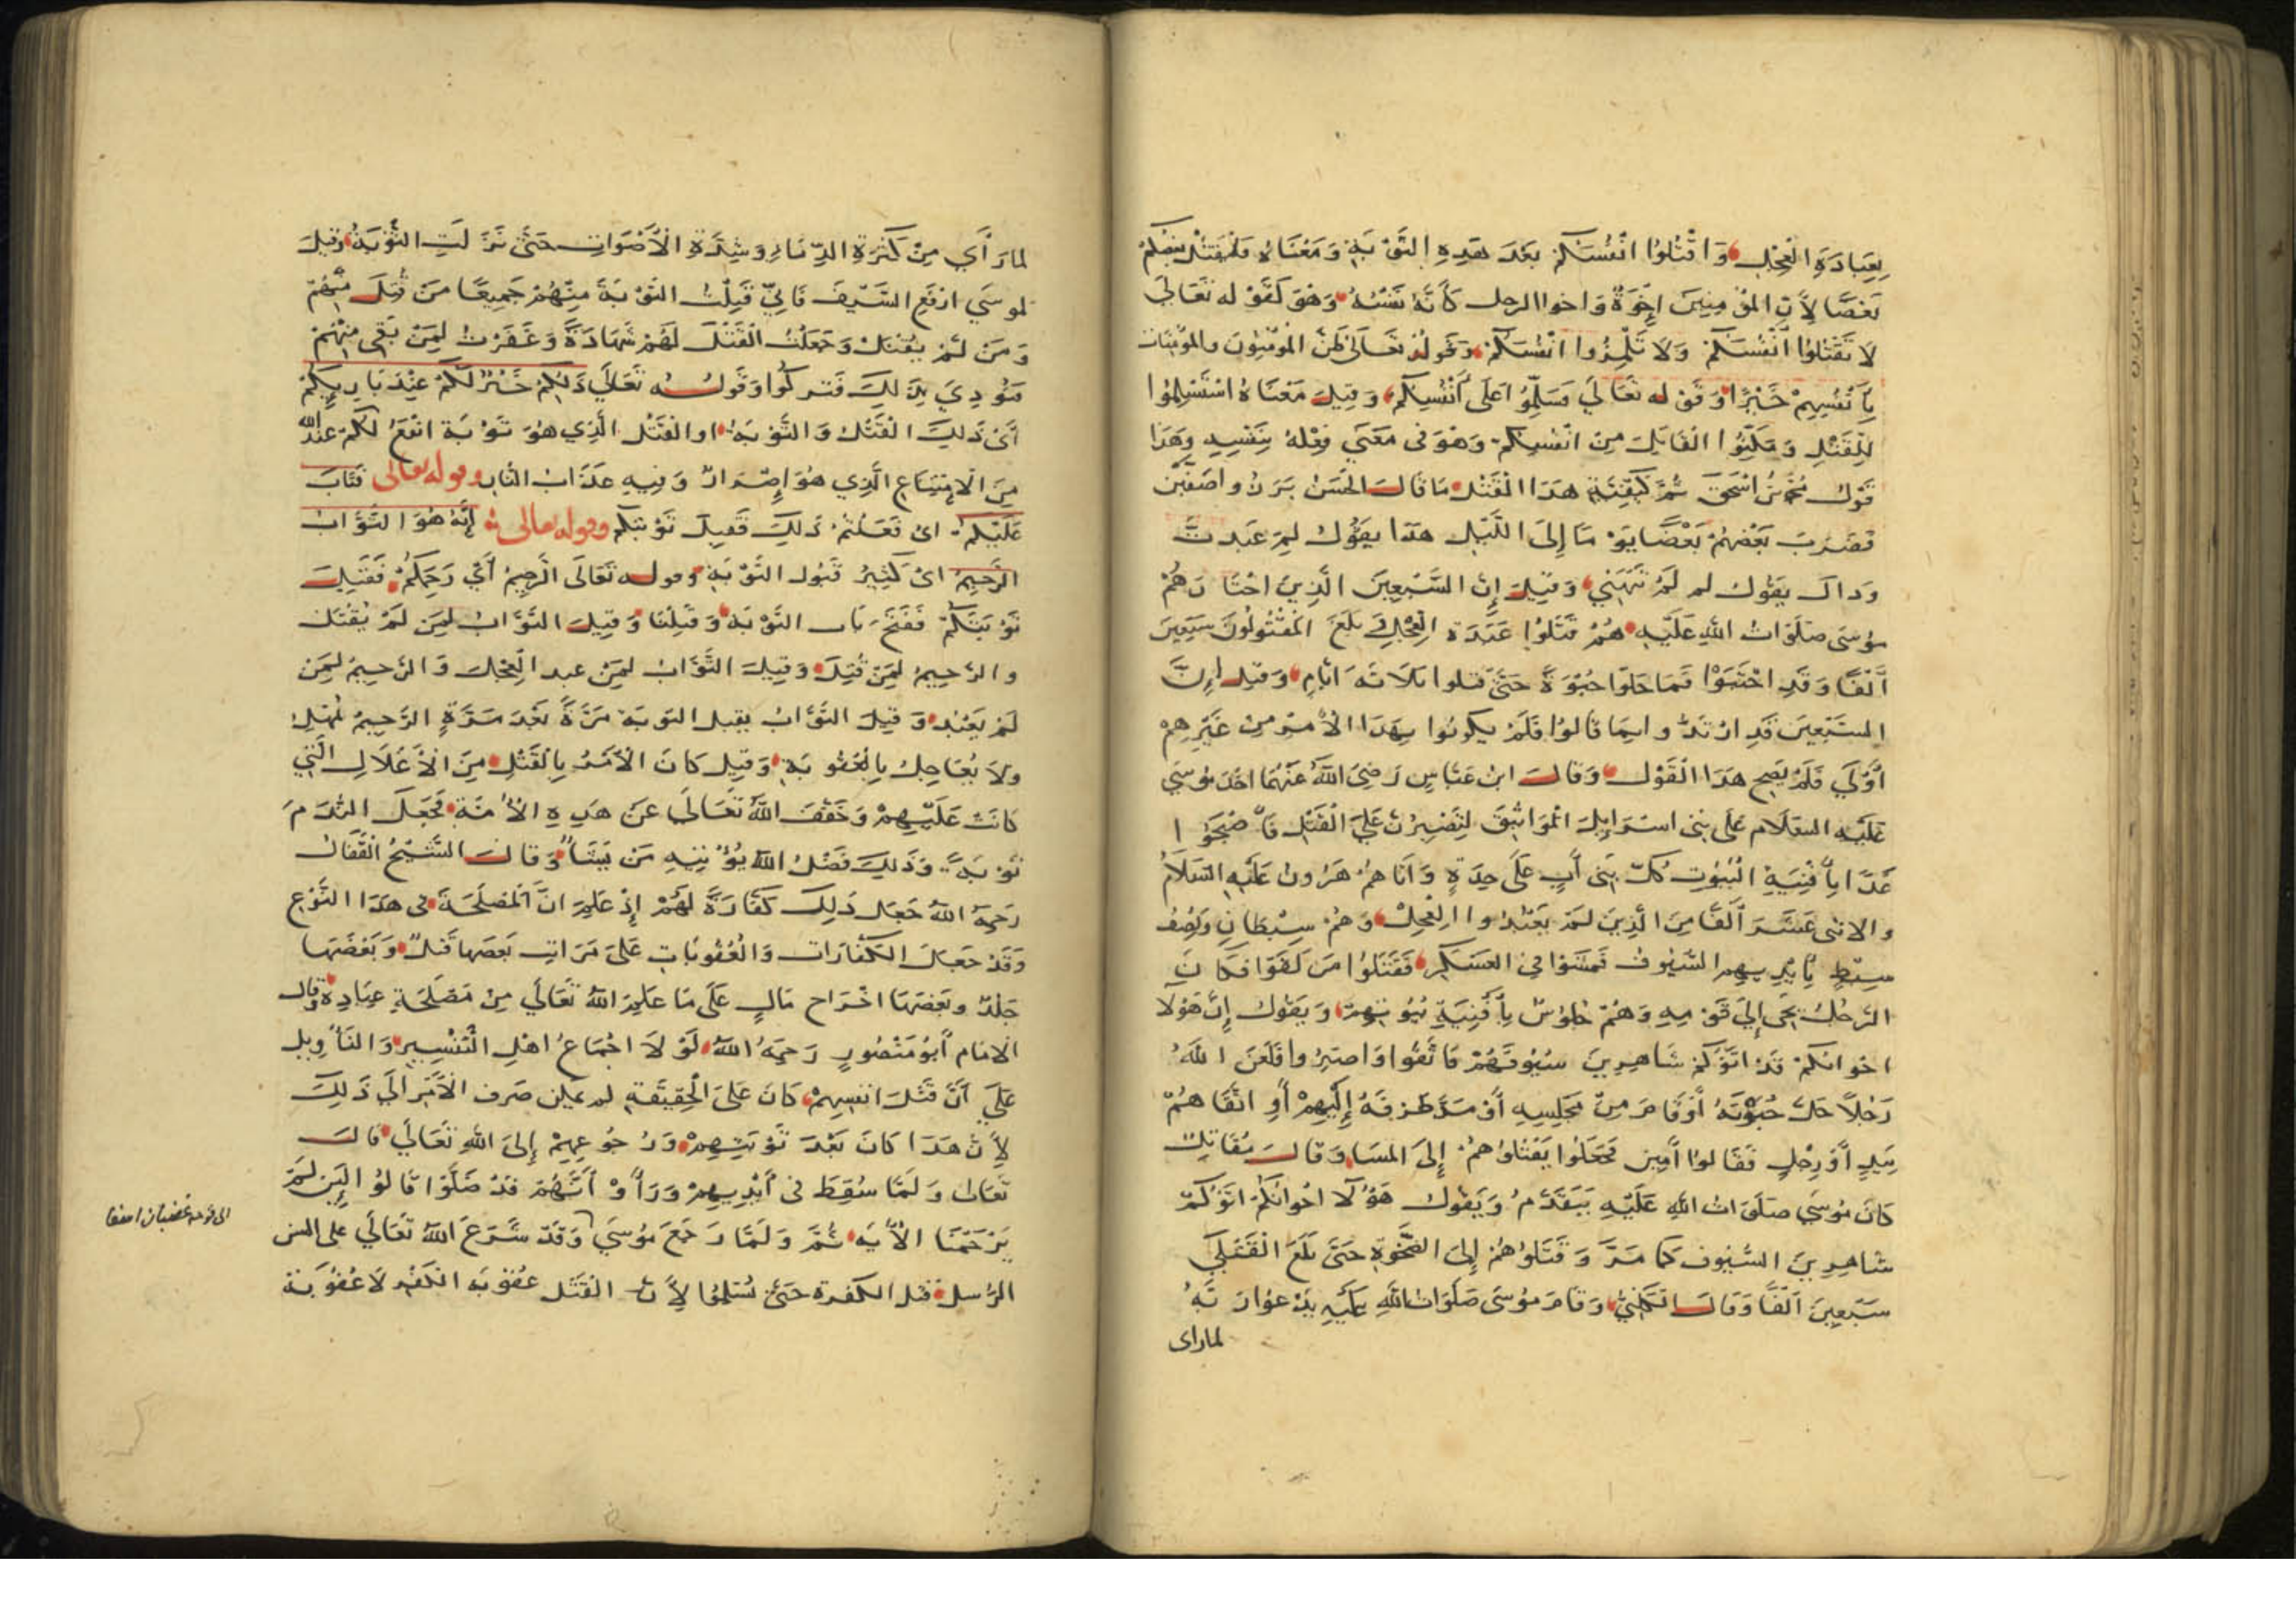 بِعِبَادَةِ الْعِجْلِ وَاقْتُلُوا انْفُسَكُمْ بَعْدَ هَذِهِ التَّوْبَةِ وَمَعْنَاهُ فَلْيَقْتُلْ بَعْضُكُمْ
بَعْضًا لِأَنَّ المُؤْمِنِينَ اخِوَةٌ وَاخوا الرجل كَأَنَّهُ نَفْسُهُ وَهُوَ كَقَوْله تَعَالَى
لَا تَقْتُلُوا انْفُسَكُمْ وَلَا تَلْمِزُوا انْفُسَكُمْ وَقَولُهُ تَعَالَى ظَنَّ المُؤْمِنُونَ والمُؤْمِنَات
بِأَنْفُسِهِمْ خَيْرًا وَقَوْله تَعَالَى فَسَلِّمُوا عَلَى أَنْفُسِكُمْ وَقِيلَ مَعْنَاهُ اسْتَسْلِمُوا
لِلْقَتْلِ وَمَكِّنُوا الْقَاتِلَ مِنْ انْفُسِكُمْ وَهُوَ فى مَعْنَى فِعْلِهُ بِنَفْسِهِ وَهَذَا
قَوْلُ مُحَمَّدُ بْنُ اسْحٰقَ ثُمَّ كَيْفِيَّةُ هَذَا الْقَتْلِ مَا قَالَ الحَسَنُ بَرَزُوا صَفَّيْنِ
فَضَرَبَ بَعْضُهُمْ بَعْضًا يَوْمًا إِلَى اللَّيْلِ هَذَا يَقُولُ لِمَ عَبَدتَّ
وَذاك يَقُولُ لم لَمْ تَنْهَنِي وَقِيلَ إِنَّ السَّبْعِينَ الَّذِينَ اخْتَارَهُمْ
مُوسَى صَلَوَاتُ اللهِ عَلَيْهِ هُمْ قَتَلُوا عَبَدَةَ الْعِجْلِ بَلَغَ المَقْتُولُونَ سَبْعِينَ
أَلْفًا وَقَدِ احْتَبَوْا فَمَا حَلّوا حُبْوَةً حَتَّى قتلوا ثلَاثَةَ ايَّامٍ وَقِيلَ إِنَّ
السَّبْعِينَ قَدِ ارْتَدُّوا بِمَا قَالُوا فَلَمْ يكونُوا بِهَذَا الْأَمْرِ مِنْ غَيْرِهِمْ
أَوْلَى فَلَمْ يَصِح هَذَا الْقَوْل وَقَالَ ابْن عَبَّاسٍ رَضِيَ اللَّهُ عَنْهُمَا اخَذَ مُوسَى
عَلَيْهِ السَّلَام عَلَى بَنِى اسْرَايِلَ المَوَاثِيقَ لِتَصْبِرُنَّ عَلَى الْقَتْلِ فَأَصْبَحُوا
غَدًا بِأَفْنِيَةِ الْبُيُوتِ كُلُّ بَنِى أَبٍ عَلَى حِدَةٍ وَأَتَاهُمْ هَرُونُ عَلَيْهِ السَّلَامُ
والاثنى عَشَرَ أَلْفًا مِنَ الَّذِينَ لَمْ يَعْبُدُوا الْعِجْلَ وَهُمْ سِبْطَانِ وَنِصْفُ
سِبْطٍ بِأَيْدِيهِمِ السُّيُوفُ فَمَشَوا فِى العَسْكَرِ فَقَتَلُوا مَن لَقوْا فَكَانَ
الرَّجُلُ يَجِى إِلَى قَوْمِهِ وَهُمْ جُلُوسٌ بِأَفْنِيَةِ بُيُوتِهِمْ وَيَقُولُ إِنَّ هَوْلَا
اخوانكُمْ قَدْ اتَوْكُمْ شَاهِرِينَ سُيُوفَهُمْ فَاتَّقُوا وَاصْبِرُوا فَلَعَنَ اللهُ
رَجُلًا حَلَّ حُبْوَتَهُ أَوْ قَامَ مِنْ مَجْلِسِهِ أَوْ مَدَّ طَرْفَهُ إِلَيْهِمْ أَوِ اتَّقَاهُمْ
بِيَدٍ أَوْ رِجْلٍ فَقَالوا أَمِين فَجَعَلُوا يَقْتُلُوهُمْ إِلَى المَسَا وَقَالَ مُقَاتِلٌ
كَانَ مُوسَى صَلَوَاتُ اللهِ عَلَيْهِ يَتَقَدَّمُ وَيَقُولُ هَؤُلَا اخْوانُكُمْ اتَوْكُمْ
شاهِرِينَ السُّيُوف كَمَا مَرَّ وَقَتَلُوهُمْ إِلَى الضَّحْوَةِ حَتَّى بَلَغَ الْقَتْلَى
سَبْعِينَ أَلْفًا وَقَالَ الْكَلْبِيُّ وَقَامَ مُوسَى صَلَوَاتُ اللهِ عَلَيْهِ يَدْعُو رَبَّهُ
لماراى
لمارَأَى مِنْ كَثْرَةِ الدِّمَاءِ وَشِدَّةِ الْأَصْوَاتِ حَتَّى نَزَلَتِ التَّوْبَةُ وَقِيلَ
لموسَى ارْفَعِ السَّيْفَ فَإِنِّي قَبِلْتُ التَّوْبَةَ مِنْهُمْ جَمِيعًا مَنْ قُتِلَ مِنْهُمْ
وَمَنْ لَمْ يُقْتَلْ وَجَعَلْتُ الْقَتْلَ لَهُمْ شَهَادَةً وَغَفَرْتُ لِمَنْ بَقِىَ مِنْهُمْ
فَنُودِيَ بِذَلِكَ فَتَركُوا وَقَولُه تَعَالَى ذَلِكُمْ خَيْرٌ لَكُمْ عِنْدَ بَارِيِكُمْ
أَىْ ذَلِكَ الْقَتْلُ وَالتَّوْبَةُ او الْقَتْل الَّذِي هُوَ تَوْبَة انْفَعُ لَكُمْ عِنْدَ الله
مِنَ الْامْتِنَاعِ الَّذِي هُوَ إِصْرَارٌ وَفِيهِ عَذَابُ النَّارِ وقوله تعالى فَتَابَ
عَلَيْكُمْ اىْ فَعَلْتُمْ ذَلِكَ فَقَبِلَ تَوْبتكُم وقوله تعالى إِنَّهُ هُوَ التَّوَّابُ
الرَّحِيمُ اىْ كَثِيرُ قَبُولِ التَّوْبَةِ وقوله تَعَالَى الرَّحِيمُ أَيْ رَحِمَكُمْ فَقَبِلَ
تَوْبَتَكُمْ فَفَتَحَ بَاب التَّوْبَةِ وَقَبِلْنَا وَقِيلَ التَّوَّابُ لِمَنْ لَمْ يُقْتَلْ
والرَّحِيمُ لِمَنْ قُتِلَ وَقِيلَ التَّوَّابُ لِمَنْ عبد الْعِجْلَ وَالرَّحِيمُ لِمَنْ
لَمْ يَعْبُدْ وَقِيلَ التَّوَّابُ يقبل التوبَةَ مَرَّةً بَعْدَ مَرَّةٍ الرَّحِيمُ يُمْهِلُ
ولَا يُعَاجِلُ بِالْعُقُوبَةِ وَقِيلَ كَانَ الْأَمْرُ بِالْقَتْلِ مِنَ الْأَغْلَالِ الَّتِي
كَانَتْ عَلَيْهِمْ وَخَفَّفَ اللهُ تَعَالَى عَنْ هَذِهِ الْأُمَّةِ فَجَعَلَ النَّدَمَ
تَوْبَةً وَذَلِكَ فَضْلُ اللَّهِ يُؤْتِيهِ مَنْ يَشَاءُ وَقَالَ الشَّيْخُ الْقَفَّالُ
رَحِمَهُ اللهُ جَعَلَ ذَلِكَ كَفَّارَةً لَهُمْ إِذْ عَلِمَ انَّ الْمَصْلَحَةَ فى هَذَا النَّوْعِ
وَقَدْ جَعَلَ الْكَفَّارَاتِ وَالْعُقُوبَاتِ عَلَى مَرَاتِبَ بَعضهَا قَتْلٌ وَبَعْضُهَا
جَلْدٌ وبَعْضُهَا اخْرَاج مَالٍ عَلَى مَا عَلِمَ اللهُ تَعَالَى مِنْ مَصْلَحَةِ عِبَادِهِ وقال
الامَام أَبُو مَنْصُورٍ رَحِمَهُ اللهُ لَوْ لَا اجْمَاعُ اهْلِ التَّفْسِيرِ وَالتَّأْوِيلِ
عَلَى أَنَّ قَتْلَ انفسِهِمْ كَانَ عَلَى الْحَقِيقَةِ لم يمكن صَرف الْأَمْرِ الَى ذَلِكَ
لِأَنَّ هَذَا كَانَ بَعْدَ تَوْبَتِهِمْ وَرُجُوعِهِمْ إِلَى اللهِ تَعَالَى قَالَ
تَعَالَى وَلَمَّا سُقِطَ فِى أَيْدِيهِمْ وَرَأَوْ أَنَّهُمْ قَدْ ضَلّوْا قَالُوا لَئِن لَمْ
يَرْحَمْنَا الْآيَةَ ثُمَّ وَلَمَّا رَجَعَ مُوسَى وَقَدْ شَرَعَ اللهُ تَعَالَى على السن
الرُّسل قتل الكفرة حَتَّى يُسْلِمُوا لِأَنَّ الْقَتْل عُقُوبَة الْكُفْرِ لَا عُقُوبَة
الى قومه غضبان اسفا